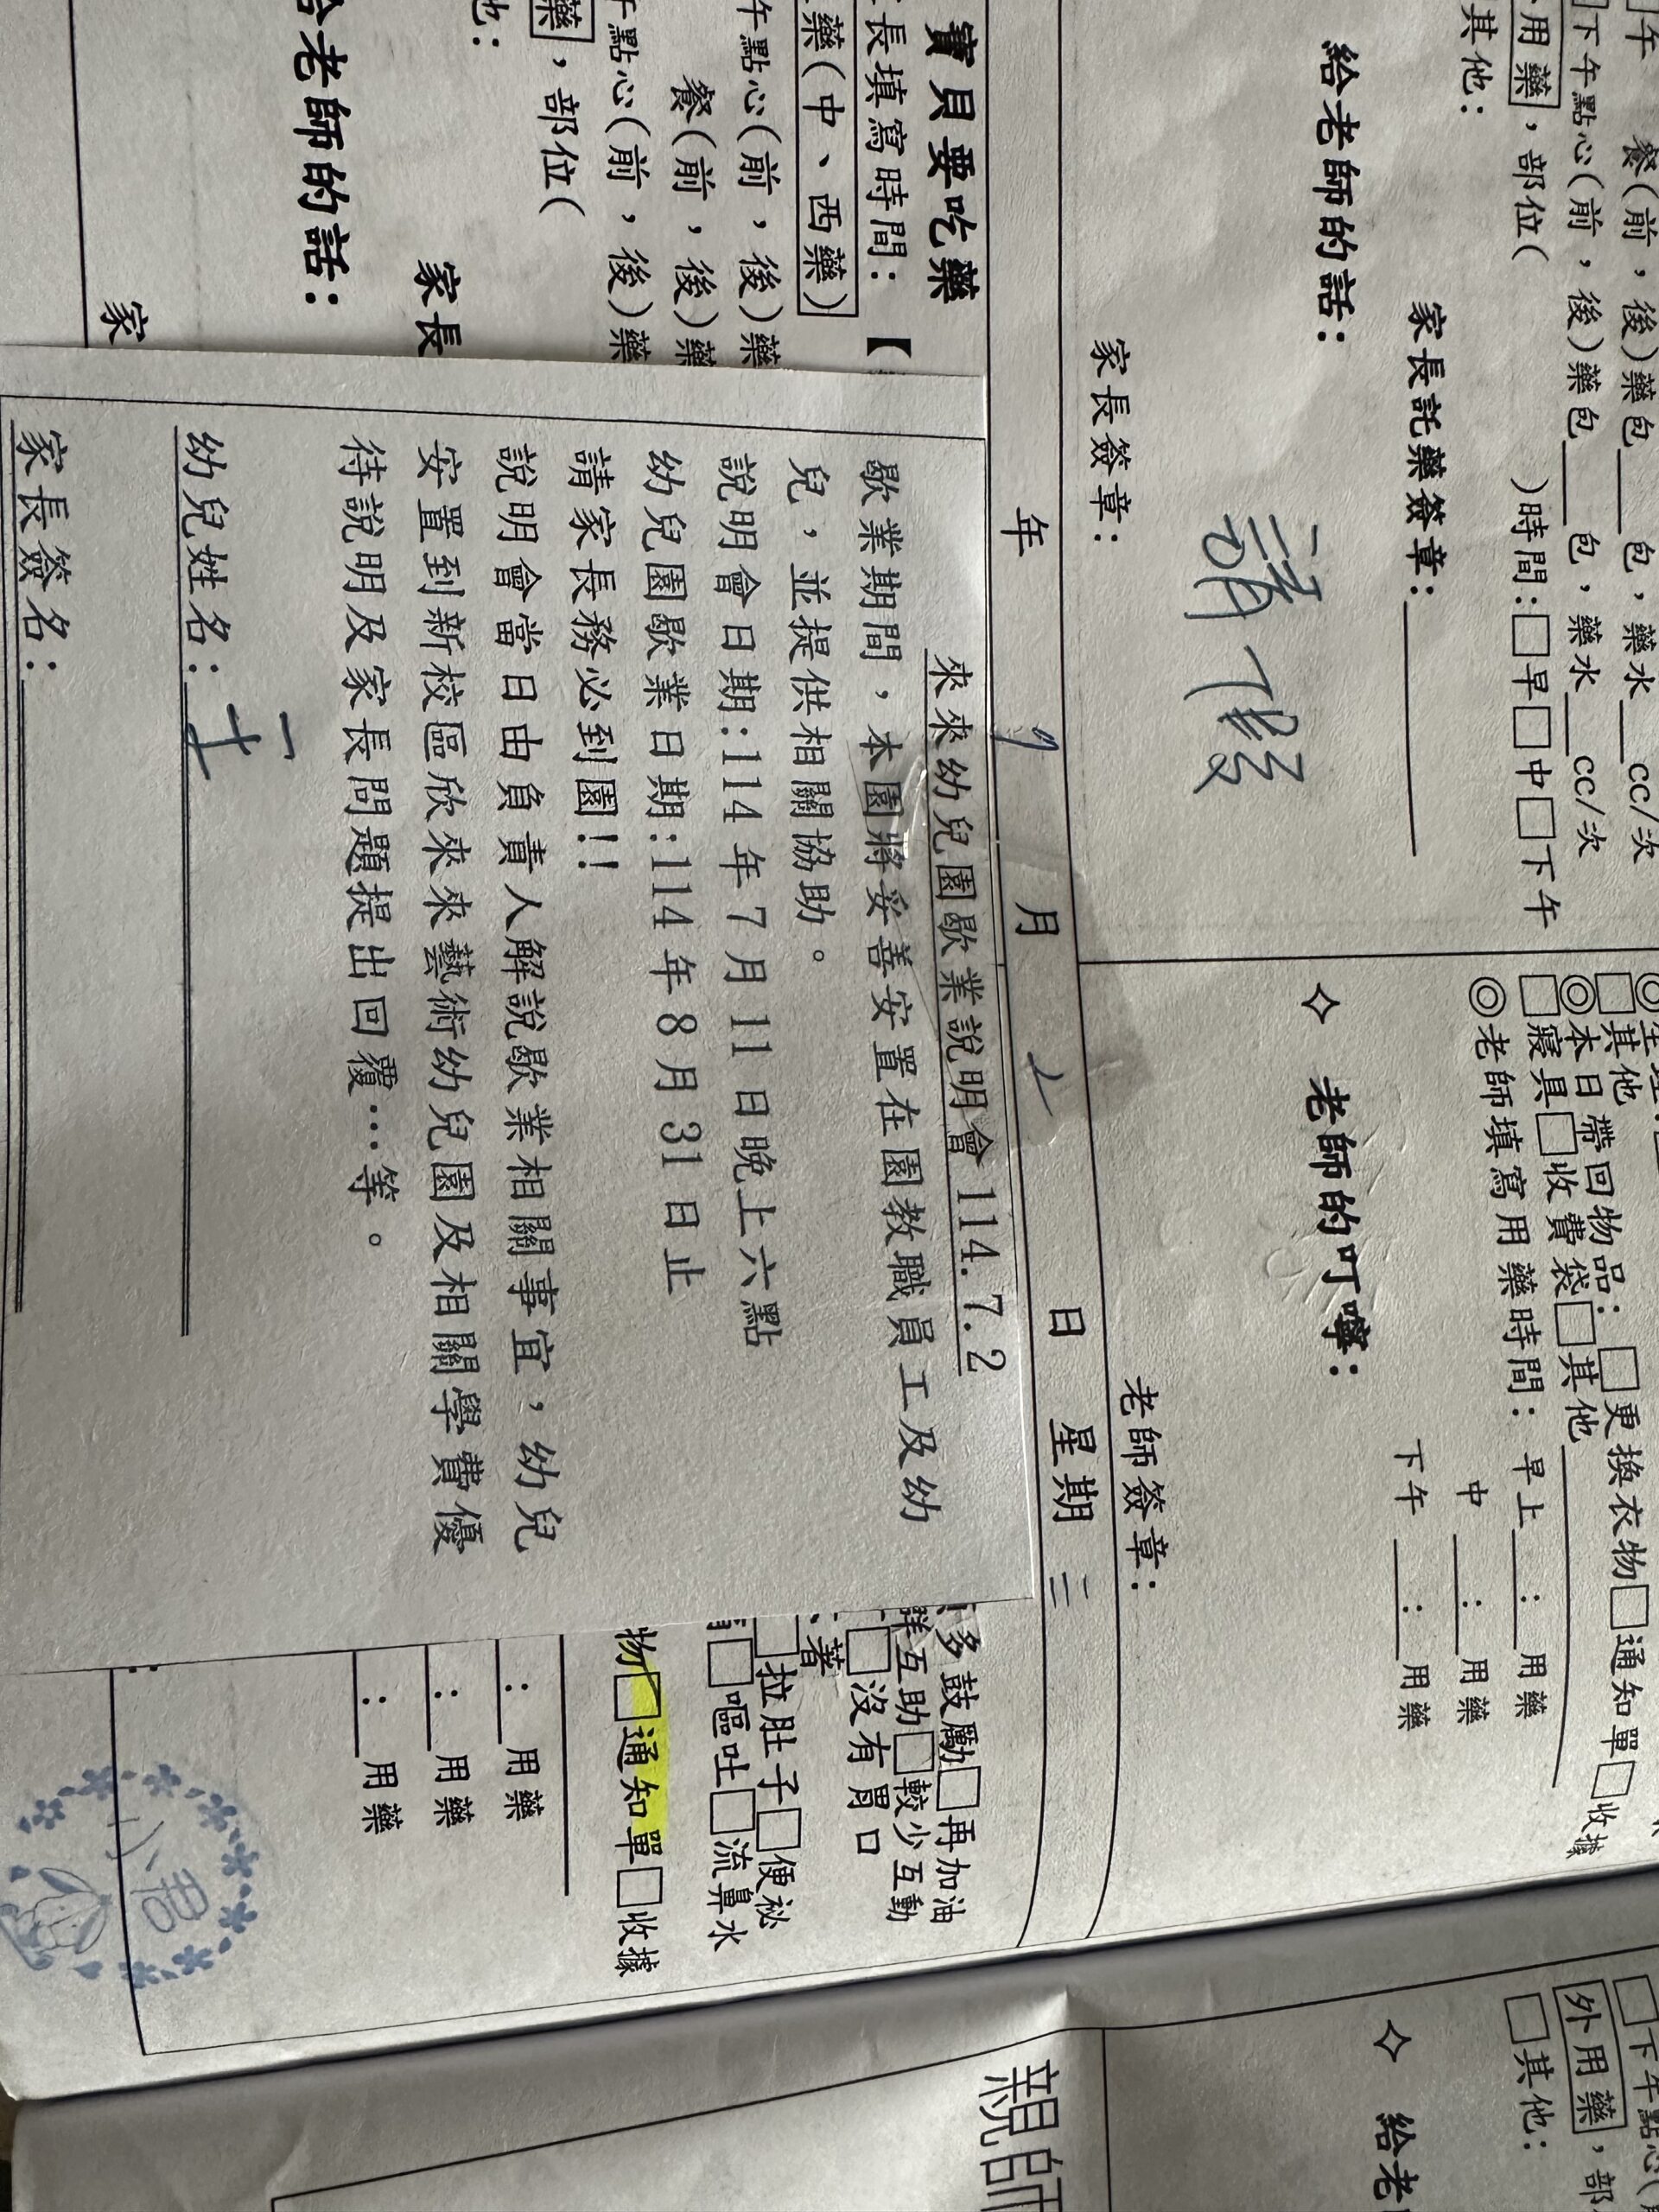 午
餐(前，後)藥包____包，藥水____cc/次
□下午點心(前，後)藥包____包，藥水____cc/次
用藥，部位( )時間:□早□中□下午
其他:
家長託藥簽章:
給老師的話:
請假
家長簽章:
□其他
□更換衣物□通知單□收據
◎本日帶回物品:
□寢具□收費袋□其他
◎老師填寫用藥時間: 早上____:____用藥
中____:____用藥
下午____:____用藥
✧ 老師的叮嚀:
老師簽章:
年 7 月 2 日 星期 三
寶貝要吃藥
長填寫時間:
藥(中、西藥)
午點心(前，後)藥
餐(前，後)藥
午點心(前，後)藥
藥，部位(
也:
家長
給老師的話:
家
來來幼兒園歇業說明會 114.7.2
歇業期間，本園將妥善安置在園教職員工及幼
兒，並提供相關協助。
說明會日期:114 年 7 月 11 日晚上六點
幼兒園歇業日期:114 年 8 月 31 日止
請家長務必到園!!
說明會當日由負責人解說歇業相關事宜，幼兒
安置到新校區欣來來藝術幼兒園及相關學費優
待說明及家長問題提出回覆…等。
幼兒姓名:
家長簽名:
多鼓勵□再加油
群互助□較少互動
□沒有胃口
著
□拉肚子□便祕
□嘔吐□流鼻水
物□通知單□收據
:____用藥
:____用藥
:____用藥
小君
□下午點心(前
外用藥，部
□其他:
✧ 給老
親師